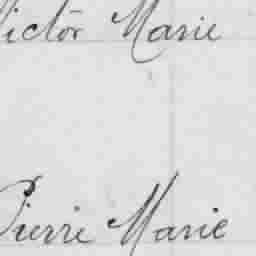 Victor Marie
Pierre Marie